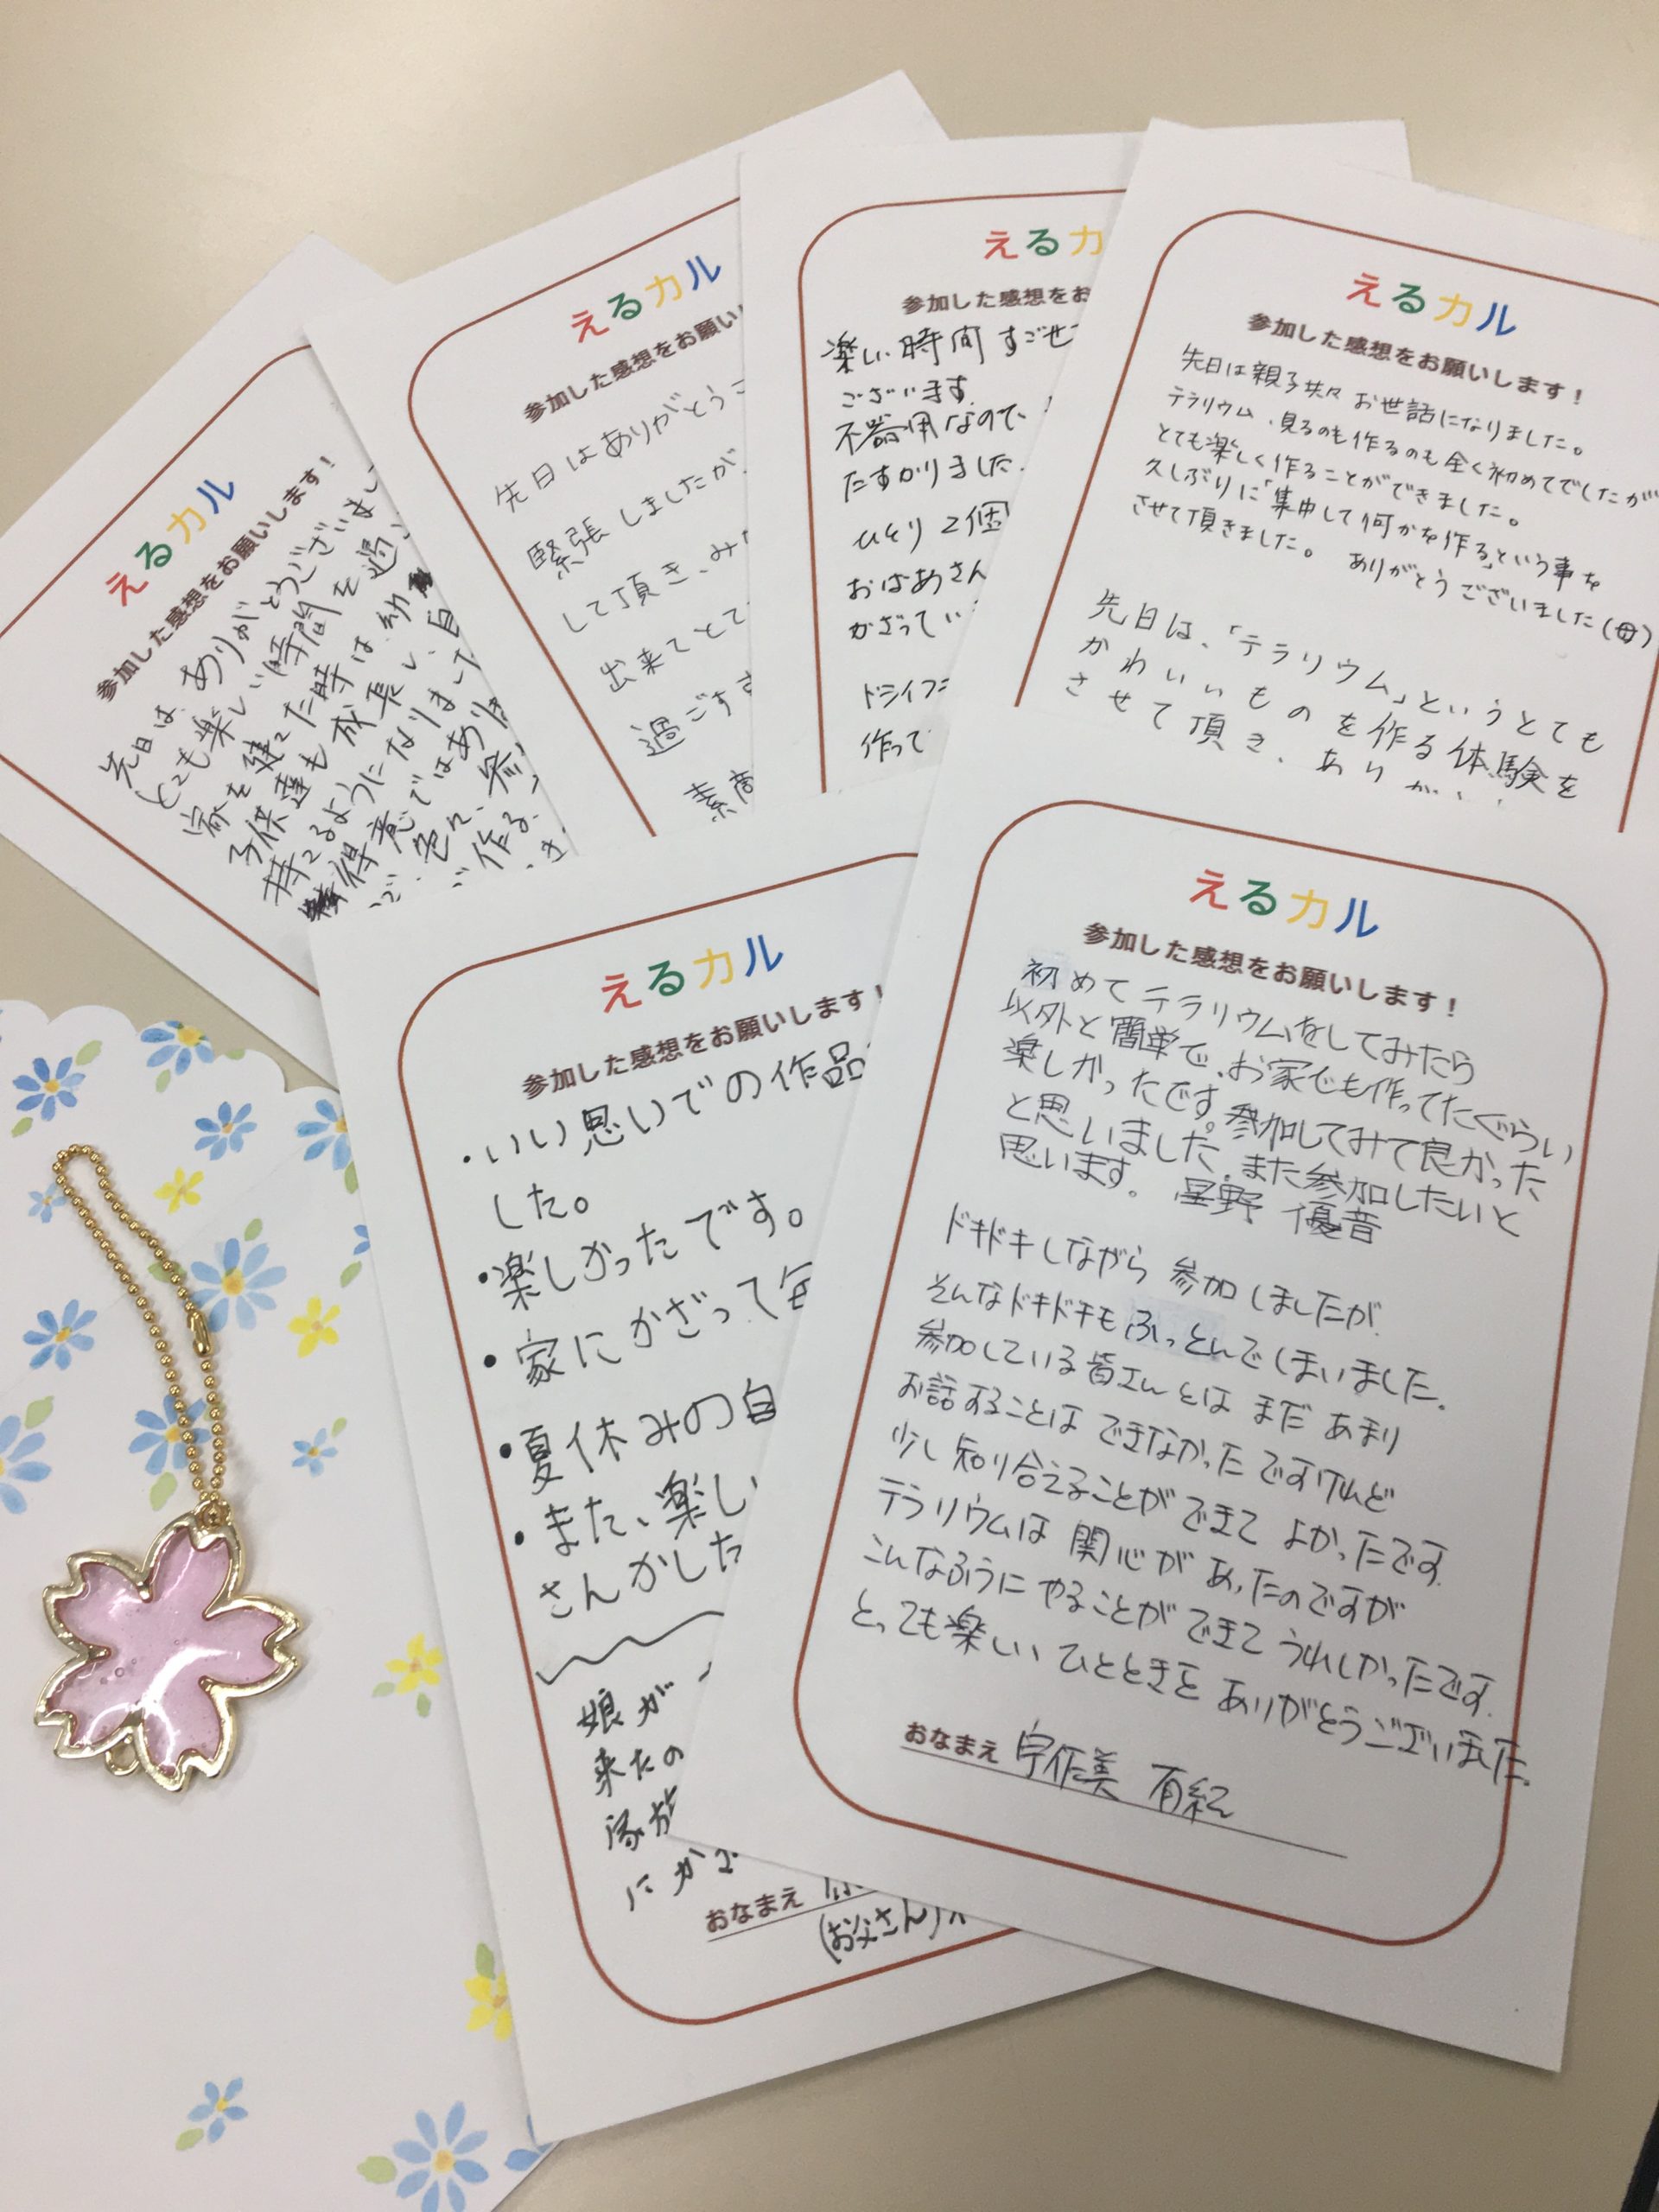 えるカル
参加した感想をお願いします！
先日は、ありがとうございまし
とても楽しい時間を過
家を建てた時は、幼
子供達も成長し、自
持てるようになりまして
得意ではあり
で、色に、
作る
えるカル
参加した感想をお願い
先日はありがとうご
緊張しましたが
して頂き、み
出来てとて
過ごすす
素
えるカ
参加した感想をお
楽しい時間すごせ
ございます。
不器用なので、
たすかりました。
ひとり2個
おばあさん
かざってい
ドライフラ
作って
えるカル
参加した感想をお願いします！
先日は親子共々お世話になりました。
テラリウム、見るのも作るのも全く初めてでしたが
とても楽しく作ることができました。
久しぶりに「集中して何かを作る」という事を
させて頂きました。ありがとうございました(母)
先日は、「テラリウム」というとても
かわいいものを作る体験を
させて頂き、ありが
えるカル
参加した感想をお願いします！
・いい思いでの作品
した。
・楽しかったです。
・家にかざって毎
・夏休みの自
・また、楽し
さんかした
娘が
来たの
家族
にかざ
おなまえ
(お父さん)
えるカル
参加した感想をお願いします！
初めてテラリウムをしてみたら
以外と簡単で、お家でも作ってたぐらい
楽しかったです。参加してみて良かった
と思いました。また参加したいと
思います。 星野 優音
ドキドキしながら 参加しましたが
そんなドキドキもふっとんでしまいました。
参加している皆さんとは まだ あまり
お話することは できなかったですけれど
少し知り合えることが できて よかったです。
テラリウムは 関心が あったのですが
こんなふうに やることが できて うれしかったです。
とっても楽しい ひとときを ありがとうございました。
おなまえ 宇佐美 有紀